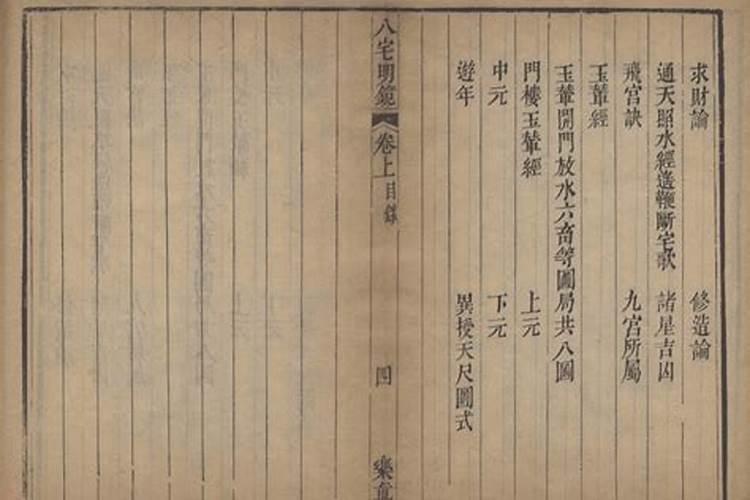 求財論 修造論
通天照水經遊鞭斷宅歌 諸星吉凶
飛宮訣 九宮所屬
玉輦經
玉輦開門放水六畜等圖局共八圖
門樓玉輦經 上元
中元 下元
遊年 異授天尺圖式
八宅明鏡 卷上目錄 四